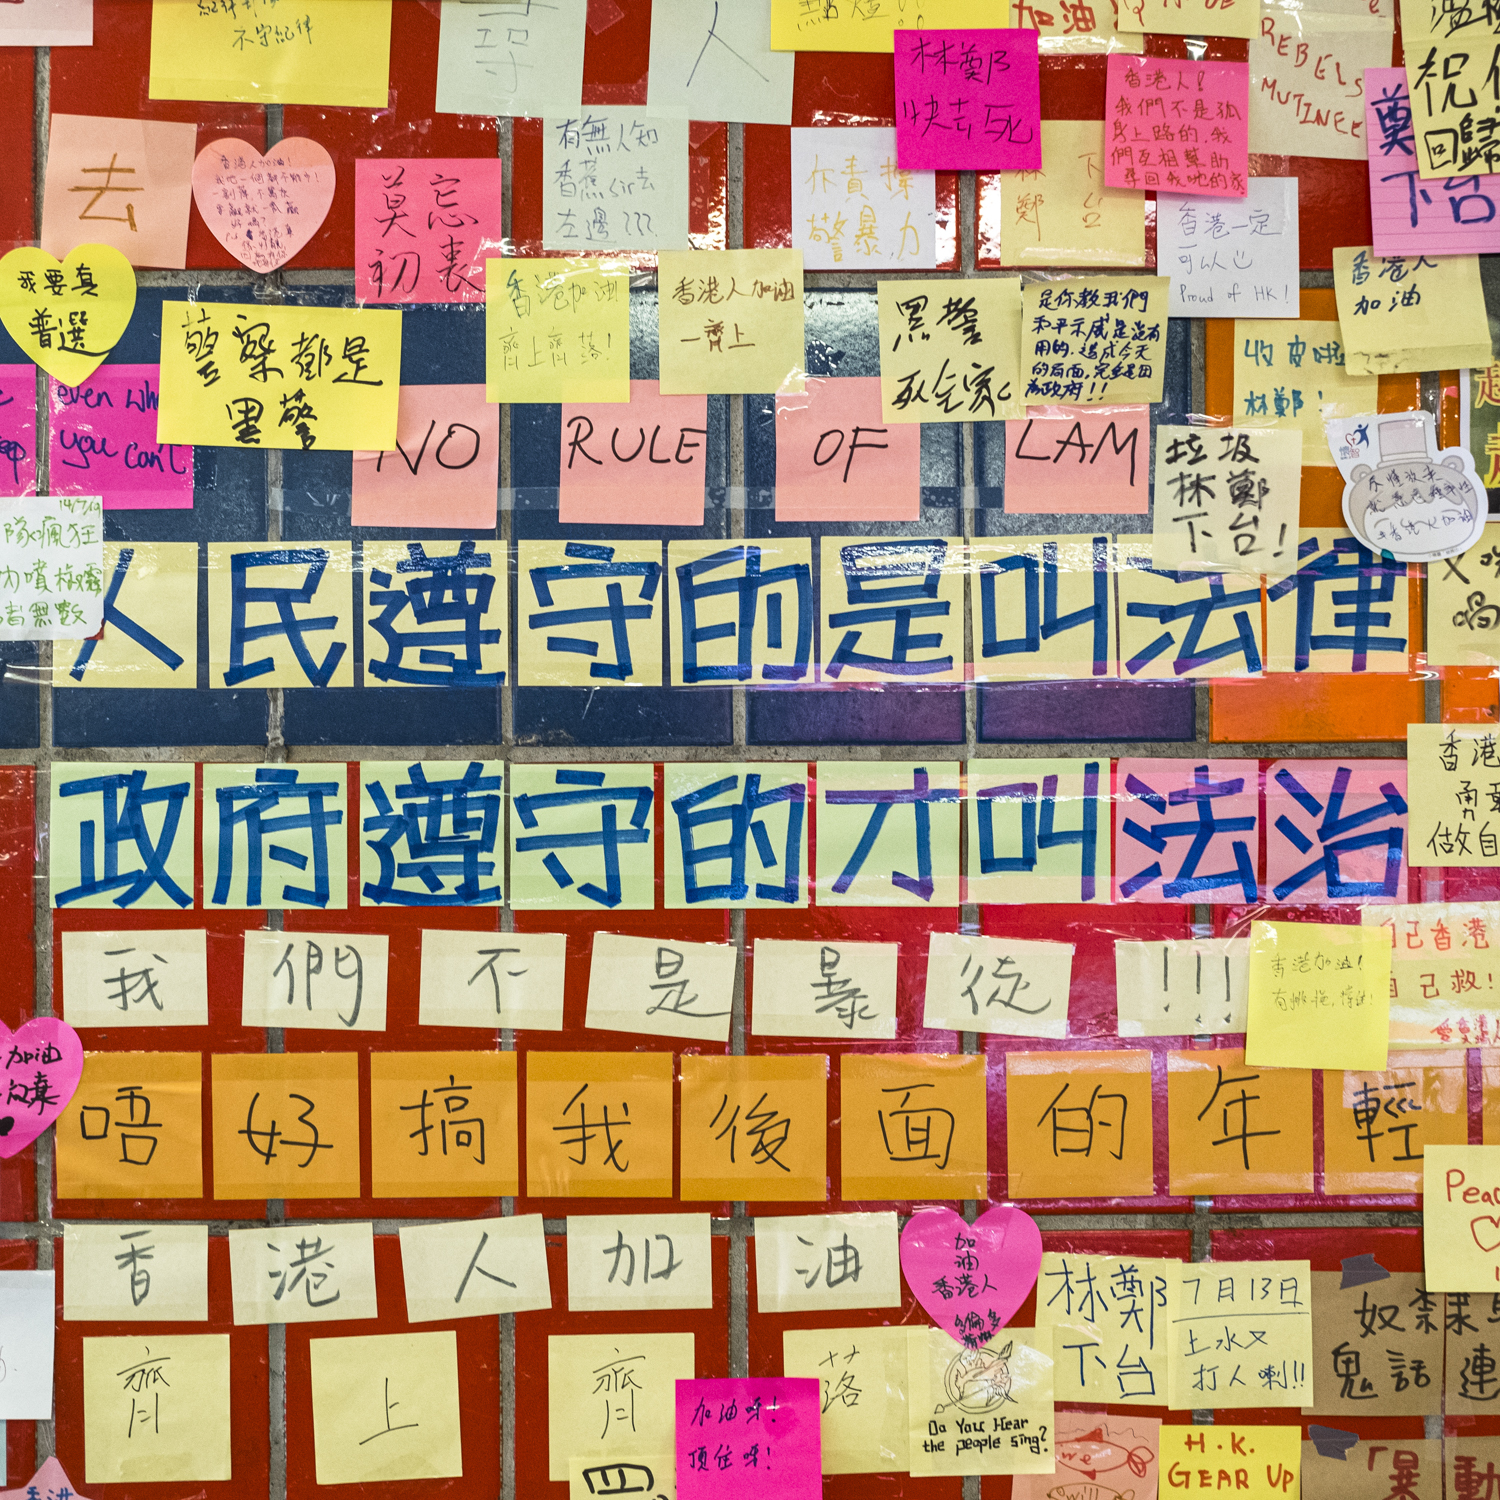 不守紀律
尋
人
加油!
REBELS
MUTINEE
林鄭
快去死
香港人!
我們不是孤
身上路的,我
們互相幫助
尋回我哋的家
祝
回歸
去
香港人加油!
莫忘
初衷
有無人知
香蕉sir去
左邊???
警暴力
林鄭
下台
香港一定
可以
Proud of HK!
下台
香港人
加油
我要真
普選
警察都是
黑警
香港加油
齊上齊落!
香港人加油
一齊上
黑警
死全家
是你教我們
和平示威是沒有
用的,造成今天
的局面,完全是因
為政府!!
收皮啦
林鄭!
even wh
you can't
NO RULE OF LAM
垃圾
林鄭
下台!
14/7/19
隊瘋狂
噴椒霧
者無數
人民遵守的是叫法律
政府遵守的才叫法治
香港
勇
做自
我們不是暴徒!!!
香港加油!
自己香港
自己救!
加油
唔好搞我後面的年輕
香港人加油
加油
香港人
林鄭
下台
7月13日
上水又
打人喇!!
Peac
奴
鬼話連
齊上齊落
加油呀!
頂住呀!
Do You Hear
the people sing?
we
will
H.K.
GEAR UP
四
動
香港